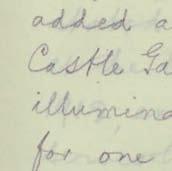 added a
Castle Ga
illumina
for one